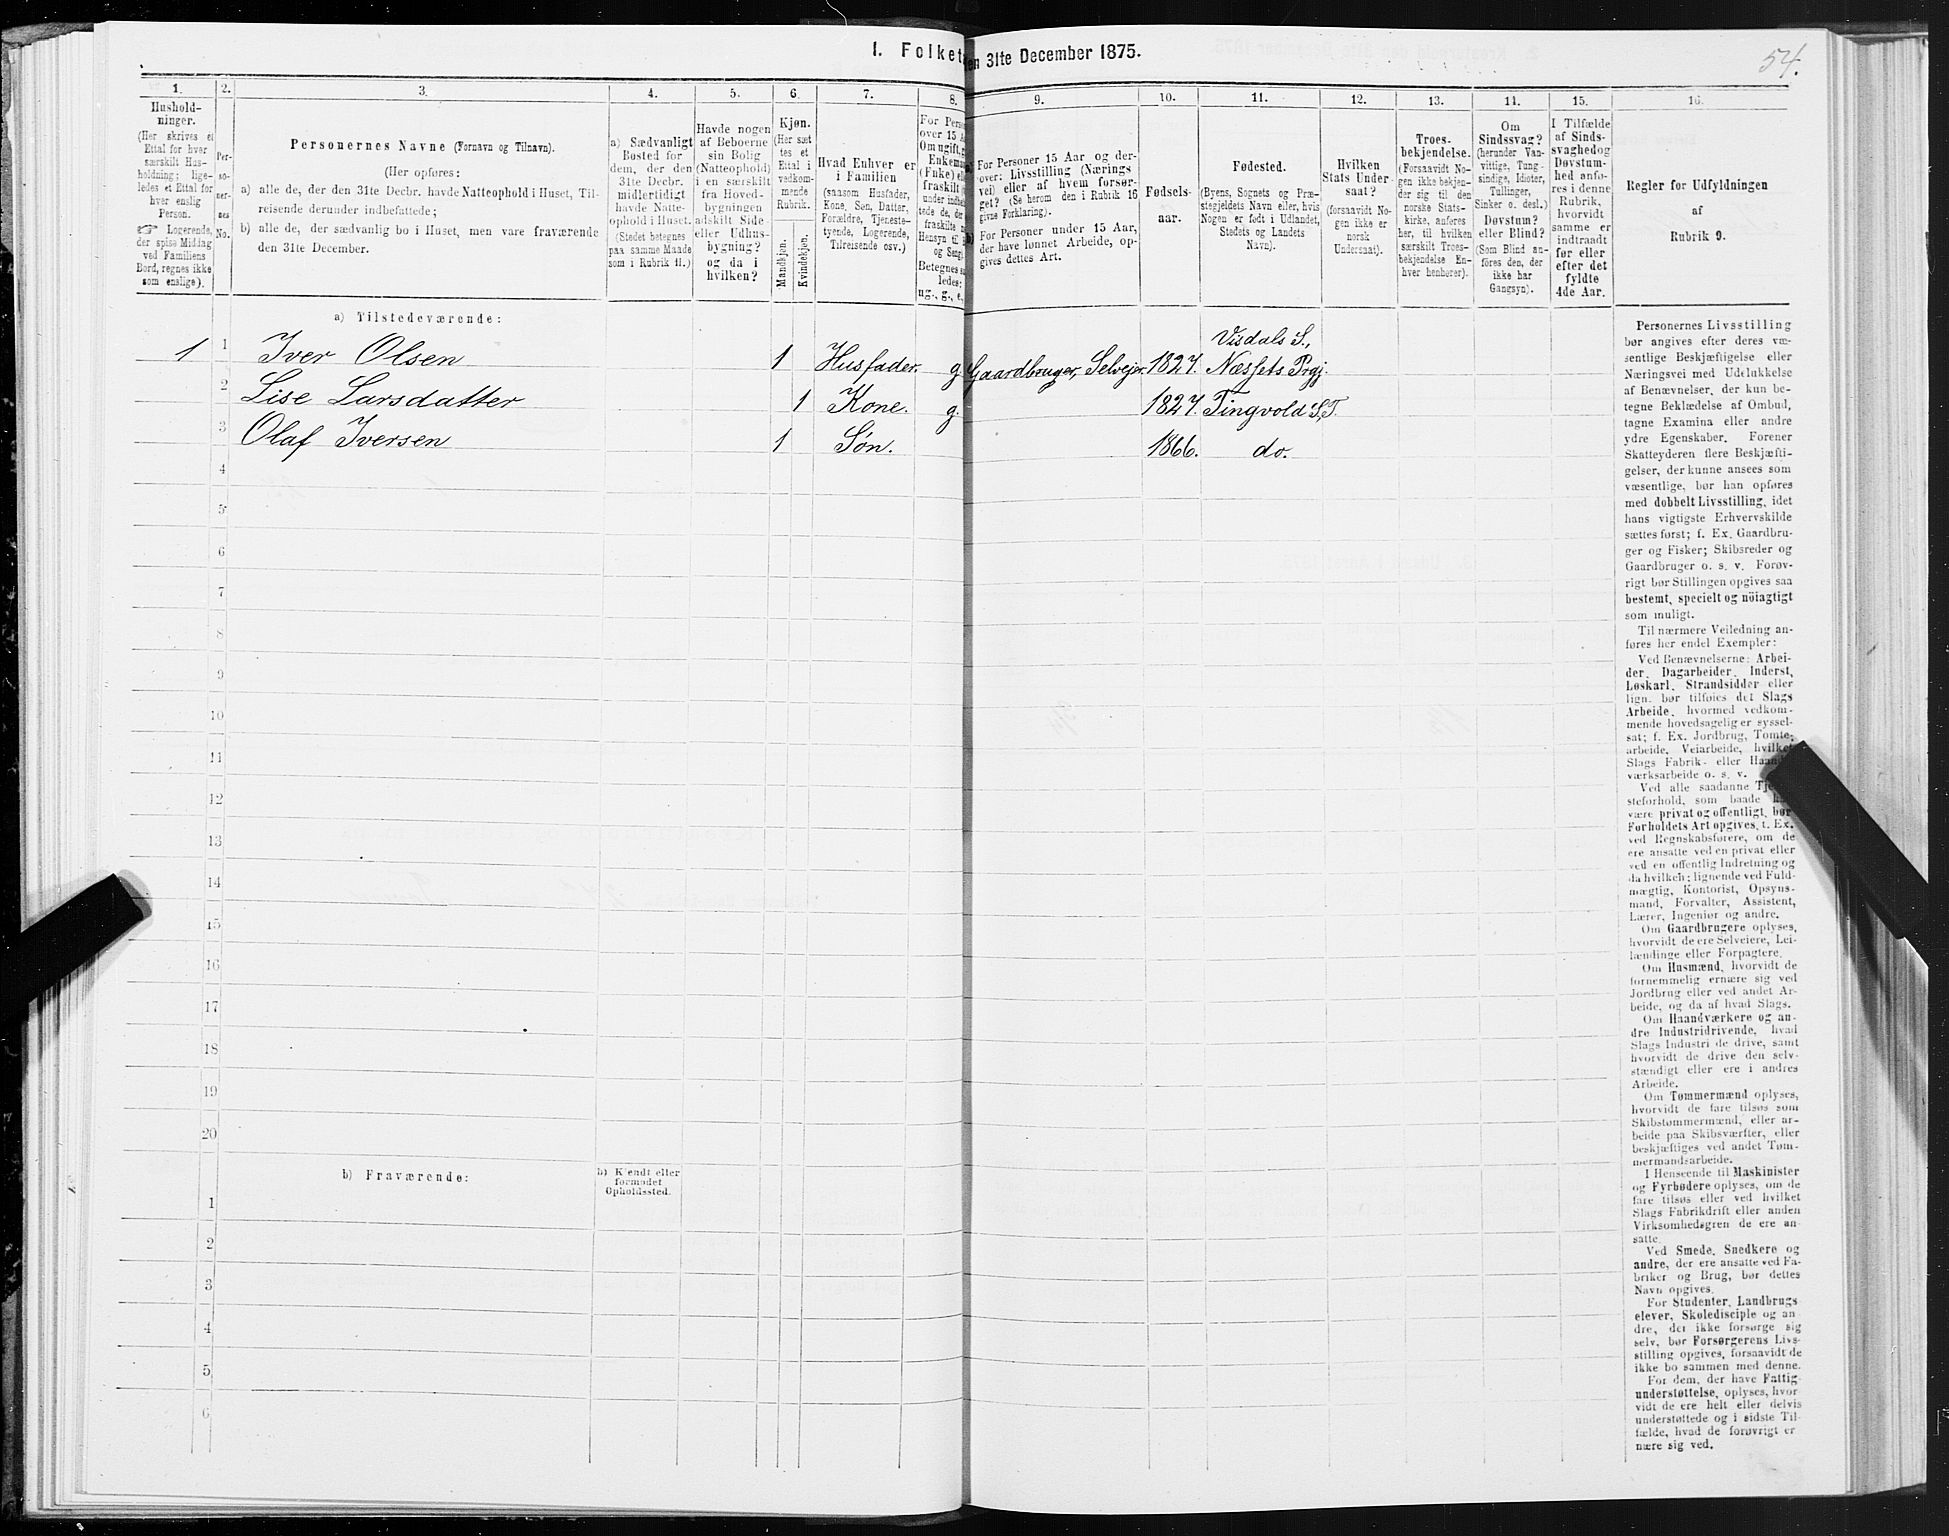 I. Folket en 31te December 1875.
54.
1.
Hushold-
ninger.
(Her skrives et
Ettal for hver
særskilt Hus-
holdning; lige-
ledes et Ettal for
hver enslig
Person.
☞ Logerende,
der spise Middag
ved Familiens
Bord, regnes ikke
som enslige).
2.
Per-
so-
ner-
nes
No.
3.
Personernes Navne (Fornavn og Tilnavn).
(Her opføres:
a) alle de, der den 31te Decbr. havde Natteophold i Huset, Til-
reisende derunder indbefattede;
b) alle de, der sædvanlig bo i Huset, men vare fraværende
den 31te December.
4.
a) Sædvanligt
Bosted for
dem, der den
31te Decbr.
midlertidigt
havde Natte-
ophold i Huset.
(Stedet betegnes
paa samme Maade
som i Rubrik 11.)
5.
Havde nogen
af Beboerne
sin Bolig
(Natteophold)
i en særskilt
fra Hoved-
bygningen
adskilt Side-
eller Udhus-
bygning?
og da i
hvilken?
6.
Kjøn.
(Her sæt-
tes et
Ettal i
vedkom-
mende
Rubrik.
Mandkjøn.
Kvindekjøn.
7.
Hvad Enhver er
i Familien
(saasom Husfader,
Kone, Søn, Datter,
Forældre, Tjeneste-
tyende, Logerende,
Tilreisende osv.)
8.
For Perso
over 15 A
Om ugift, g
Enkeman
(Enke) ell
fraskilt
under indbe
tede de, de
fraskilte
Hensyn til
og Seng.
Betegnes s
ledes:
ug., g., e.,
9.
For Personer 15 Aar og der-
over: Livsstilling (Nærings-
vei) eller af hvem forsør-
get? (Se herom den i Rubrik 16
givne Forklaring).
For Personer under 15 Aar,
der have lønnet Arbeide, op-
gives dettes Art.
10.
Fødsels-
aar.
11.
Fødested.
(Byens, Sognets og Præ-
stegjeldets Navn eller, hvis
Nogen er født i Udlandet,
Stedets og Landets
Navn).
12.
Hvilken
Stats Under-
saat?
(forsaavidt No-
gen ikke er
norsk
Undersaat).
13.
Troes-
bekjendelse.
(Forsaavidt No-
gen ikke bekjen-
der sig til den
norske Stats-
kirke, anføres
her, til hvilken
særskilt Troes-
bekjendelse En-
hver henhører).
14.
Om
Sindssvag?
(herunder Van-
vittige, Tung-
sindige, Idioter,
Tullinger,
Sinker o. desl.)
Døvstum?
eller Blind?
(Som Blind an-
føres den, der
ikke har
Gangsyn).
15.
I Tilfælde
af Sinds-
svaghed og
Døvstum-
hed anfø-
res i denne
Rubrik,
hvorvidt
samme er
indtraadt
før eller
efter det
fyldte
4de Aar.
16.
Regler for Udfyldningen
af
Rubrik 9.
a) Tilstedeværende:
1 1 Iver Olsen 1 Husfader. g Gaardbruger, Selvejer. 1827. Visdals S., Næssets Prgj.
2 Lise Larsdatter 1 Kone. g. 1827. Tingvold S., T.
3 Olaf Iversen 1 Søn. 1866. do.
4
5
6
7
8
9
10
11
12
13
14
15
16
17
18
19
20
b) Fraværende:
b) Kjendt eller
formodet
Opholdssted.
1
2
3
4
5
6
Personernes Livsstilling
bør angives efter deres væ-
sentlige Beskjæftigelse eller
Næringsvei med Udelukkelse
af Benævnelser, der kun be-
tegne Beklædelse af Ombud,
tagne Examina eller andre
ydre Egenskaber. Forener
Skatteyderen flere Beskjæfti-
gelser, der kunne ansees som
væsentlige, bør han opføres
med dobbelt Livsstilling, idet
hans vigtigste Erhvervskilde
sættes først; f. Ex. Gaardbru-
ger og Fisker; Skibsreder og
Gaardbruger o. s. v. Forøv-
rigt bør Stillingen opgives saa
bestemt, specielt og nöiagtigt
som muligt.
Til nærmere Veiledning an-
føres her endel Exempler:
Ved Benævnelserne: Arbei-
der, Dagarbeider, Inderst,
Løskarl, Strandsidder eller
lign. bør tilføies det Slags
Arbeide, hvormed vedkom-
mende hovedsagelig er syssel-
sat; f. Ex. Jordbrug, Tomte-
arbeide, Veiarbeide, hvilket
Slags Fabrik- eller Haand-
værksarbeide o. s. v.
Ved alle saadanne Tje-
steforhold, som baade
være privat og offentligt, bør
Forholdets Art opgives, t. Ex.
ved Regnskabsførere, om de
ere ansatte ved en privat eller
ved en offentlig Indretning og
da hvilken; lignende ved Fuld-
mægtig, Kontorist, Opsyns-
mand, Forvalter, Assistent,
Lærer, Ingeniør og andre.
Om Gaardbrugere oplyses,
hvorvidt de ere Selveiere, Lei-
lændinge eller Forpagtere.
Om Husmænd, hvorvidt de
fornemmelig ernære sig ved
Jordbrug eller ved andet Ar-
beide, og da af hvad Slags.
Om Haandværkere og an-
dre Industridrivende, hvad
Slags Industri de drive, samt
hvorvidt de drive den selv-
stændigt eller ere i andres
Arbeide.
Om Tømmermænd oplyses,
hvorvidt de fare tilsøs som
Skibstømmermænd, eller ar-
beide paa Skibsværfter, eller
beskjæftiges ved andet Tøm-
mermandsarbeide.
I Henseende til Maskinister
og Fyrbødere oplyses, om de
fare tilsøs eller ved hvilket
Slags Fabrikdrift eller anden
Virksomhedsgren de ere an-
satte.
Ved Smede, Snedkere og
andre, der ere ansatte ved Fa-
briker og Brug, bør dettes
Navn opgives.
For Studenter, Landbrugs-
elever, Skoledisciple og an-
dre, der ikke forsørge sig
selv, bør Forsørgerens Livs-
stilling opgives, forsaavidt de
ikke bo sammen med denne.
For dem, der have Fattig-
understøttelse, oplyses, hvor-
vidt de ere helt eller delvis
understøttede og i sidste Til-
fælde, hvad de forøvrigt er-
nære sig ved.